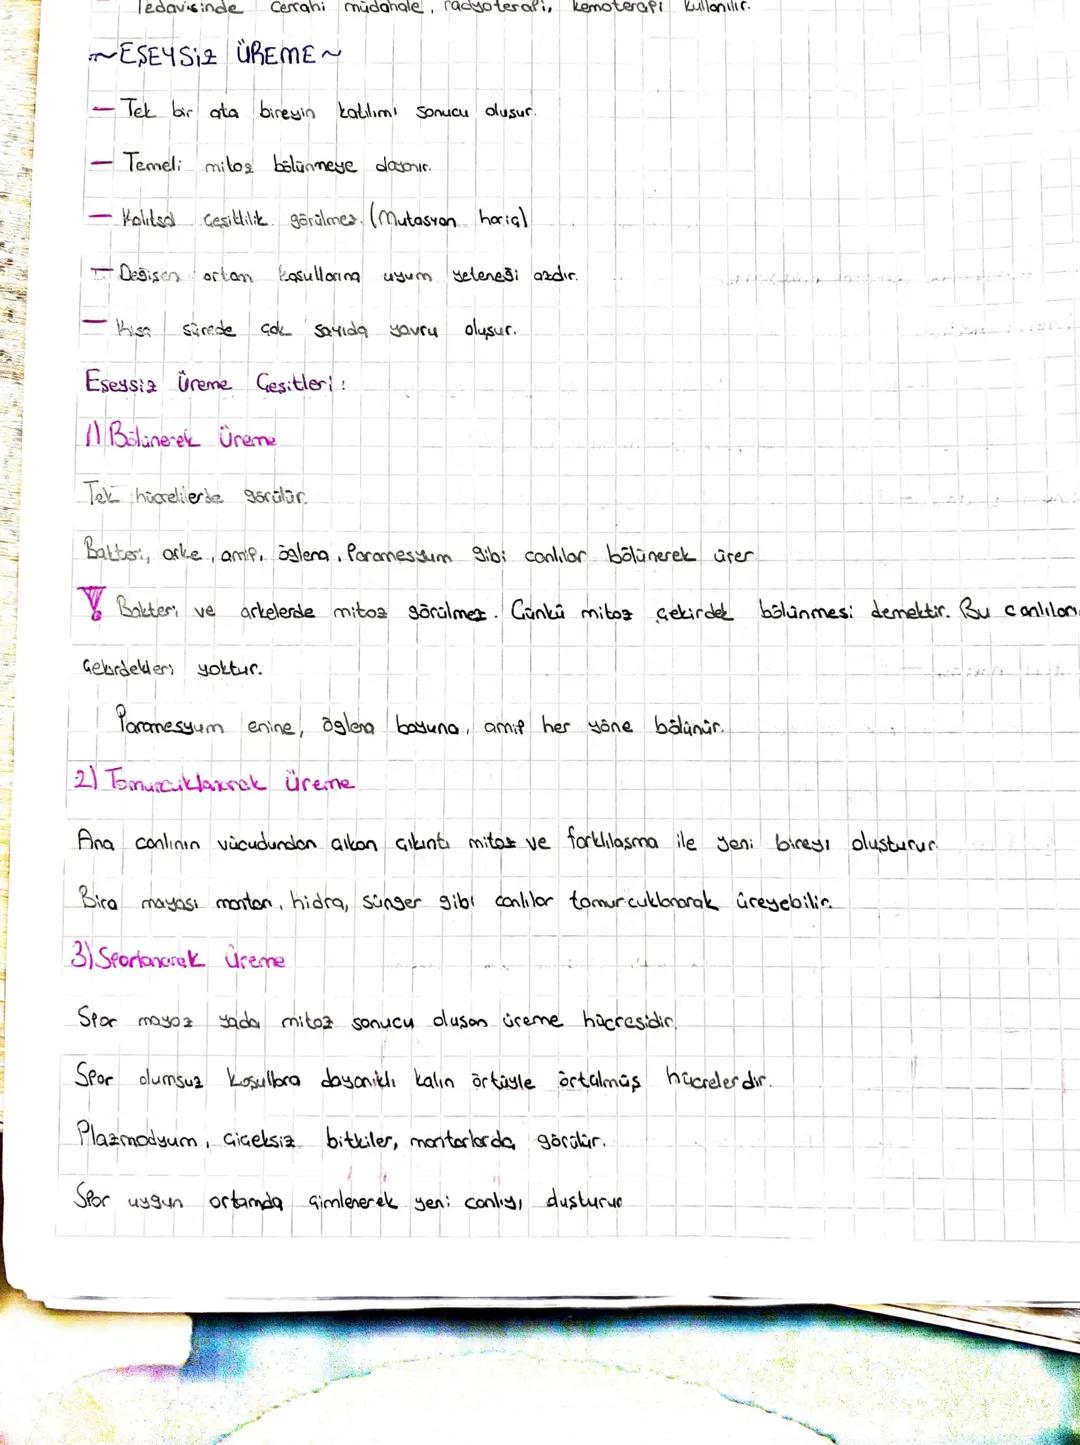 Tedavisinde cerrahi müdahale, radyoterapi, kemoterapi kullanılır.
~EŞEYSİZ ÜREME~
— Tek bir ata bireyin katılımı sonucu oluşur.
— Temeli mitoz bölünmeye dayanır.
— Kalıtsal çeşitlilik görülmez. (Mutasyon hariç)
— Değişen ortam koşullarına uyum yeteneği azdır.
— Kısa sürede çok sayıda yavru oluşur.
Eşeysiz Üreme Çeşitleri:
1) Bölünerek Üreme
Tek hücrelilerde görülür.
Bakteri, arke, amip, öglena, Paramesyum gibi canlılar bölünerek ürer
Bakteri ve arkelerde mitoz görülmez. Çünkü mitoz çekirdek bölünmesi demektir. Bu canlıların
Çekirdekleri yoktur.
Paramesyum enine, öglena boyuna, amip her yöne bölünür.
2) Tomurcuklanarak Üreme
Ana canlının vücudundan çıkan çıkıntı mitoz ve farklılaşma ile yeni bireyi oluşturur.
Bira mayası mantarı, hidra, sünger gibi canlılar tomurcuklanarak üreyebilir.
3) Sporlanarak Üreme
Spor mayoz yada mitoz sonucu oluşan üreme hücresidir.
Spor olumsuz koşullara dayanıklı kalın örtüyle örtülmüş hücrelerdir.
Plazmodyum, çiçeksiz bitkiler, mantarlarda görülür.
Spor uygun ortamda çimlenerek yeni canlıyı oluşturur